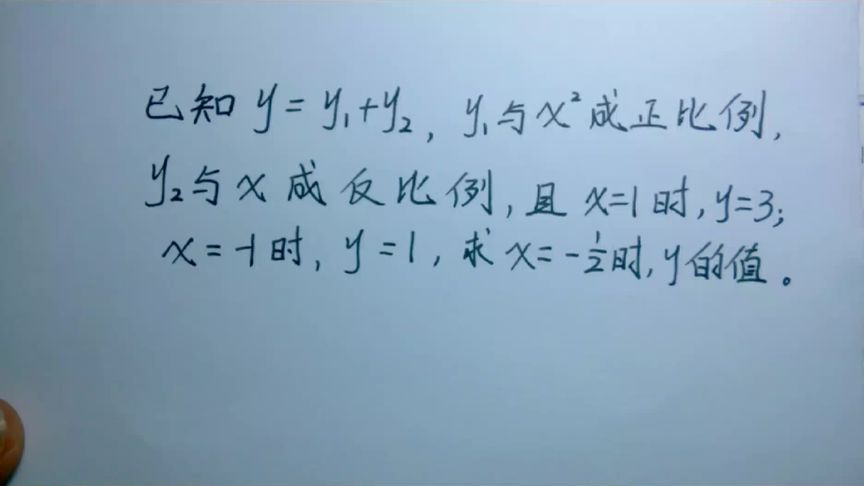 已知 y=y₁+y₂, y₁与x²成正比例,
y₂与x成反比例,且 x=1时,y=3;
x=-1时, y=1, 求 x=-½时,y的值。